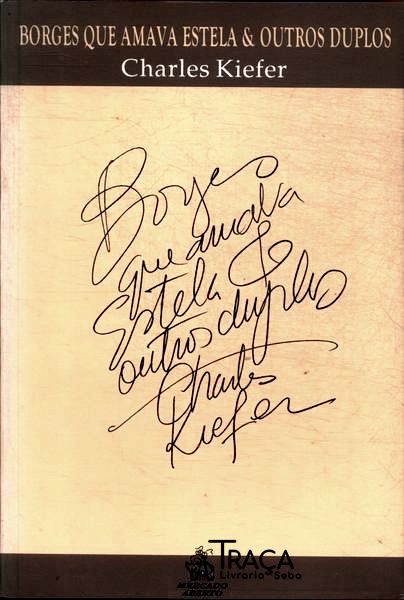 BORGES QUE AMAVA ESTELA & OUTROS DUPLOS
Charles Kiefer
Borges
que amava
Estela &
outros duplos
Charles
Kiefer
TRAÇA
Livraria Sebo
MERCADO
ABERTO